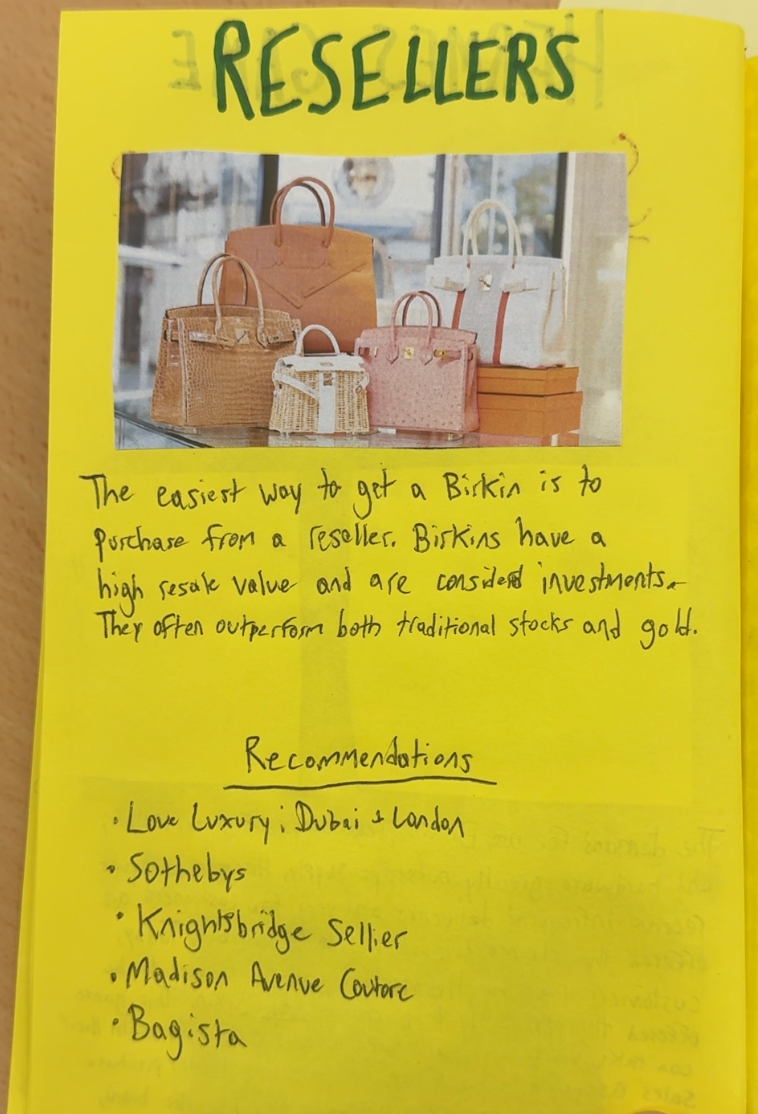 RESELLERS
The easiest way to get a Birkin is to
purchase from a reseller. Birkins have a
high resale value and are considerd investments.
They often outperform both traditional stocks and gold.
Recommendations
• Love Luxury; Dubai + London
• Sothebys
• Knightsbridge Sellier
• Madison Avenue Couture
• Bagista